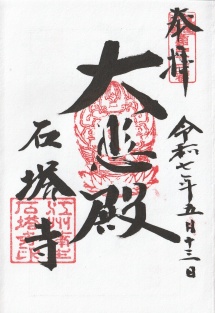 奉拝
令和七年五月十三日
大悲殿
石塔寺